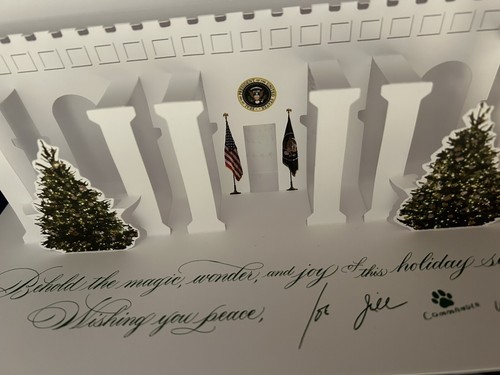 Behold the magic, wonder, and joy of this holiday
Wishing you peace,
Joe Jill
Commander